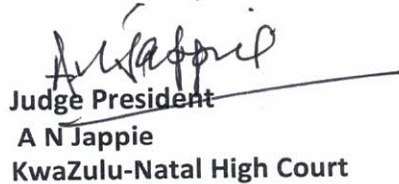 A N Jappie
Judge President
A N Jappie
KwaZulu-Natal High Court